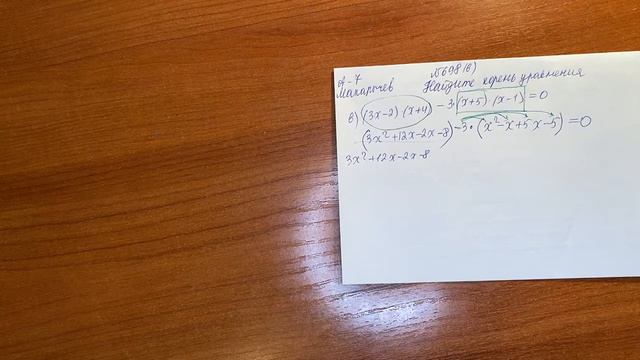 А-7 №698(в)
Макарычев Найдите корень уравнения
в) (3x-2)·(x+4) - 3·(x+5)·(x-1) = 0
(3x²+12x-2x-8) - 3·(x²-x+5x-5) = 0
3x²+12x-2x-8